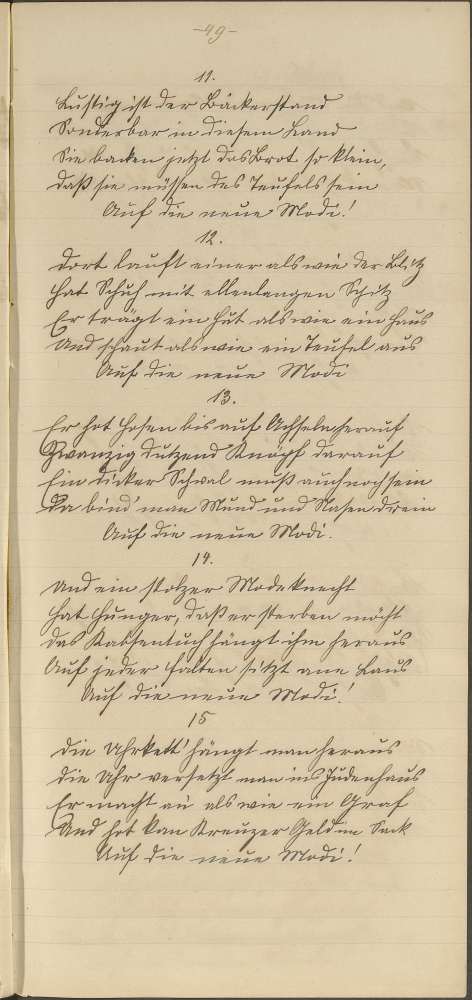 -49-
11.
Lustig ist der Bäckerstand
Sonderbar in diesem Land
Sie backen jetzt das Brot so klein,
daß sie müssen des Teufels sein
Auf die neue Modi!
12.
Dort lauft einer als wie der Blitz
Hat Schuh mit ellenlangen Spitz
Er trägt ein Hut als wie ein Haus
Und schaut als wie ein Teufel aus
Auf die neue Modi
13.
Er hat Hosen bis auf Achseln herauf
Zwanzig Dutzend Knöpf darauf
Ein dicker Schwal muß auch noch sein
Da bind' man Mund und Nasen drein
Auf die neue Modi.
14.
Und ein stolzer Modeknecht
Hat Hunger, daß er sterben möcht
Das Sacktuch hängt ihm heraus
Auf jeder Falten sitzt ane Laus
Auf die neue Modi!
15
Die Uhrkett' hängt man heraus
Die Uhr versetzt man ins Judenhaus
Er macht an als wie ein Graf
Und hat kan Kreuzer Geld im Sack
Auf die neue Modi!